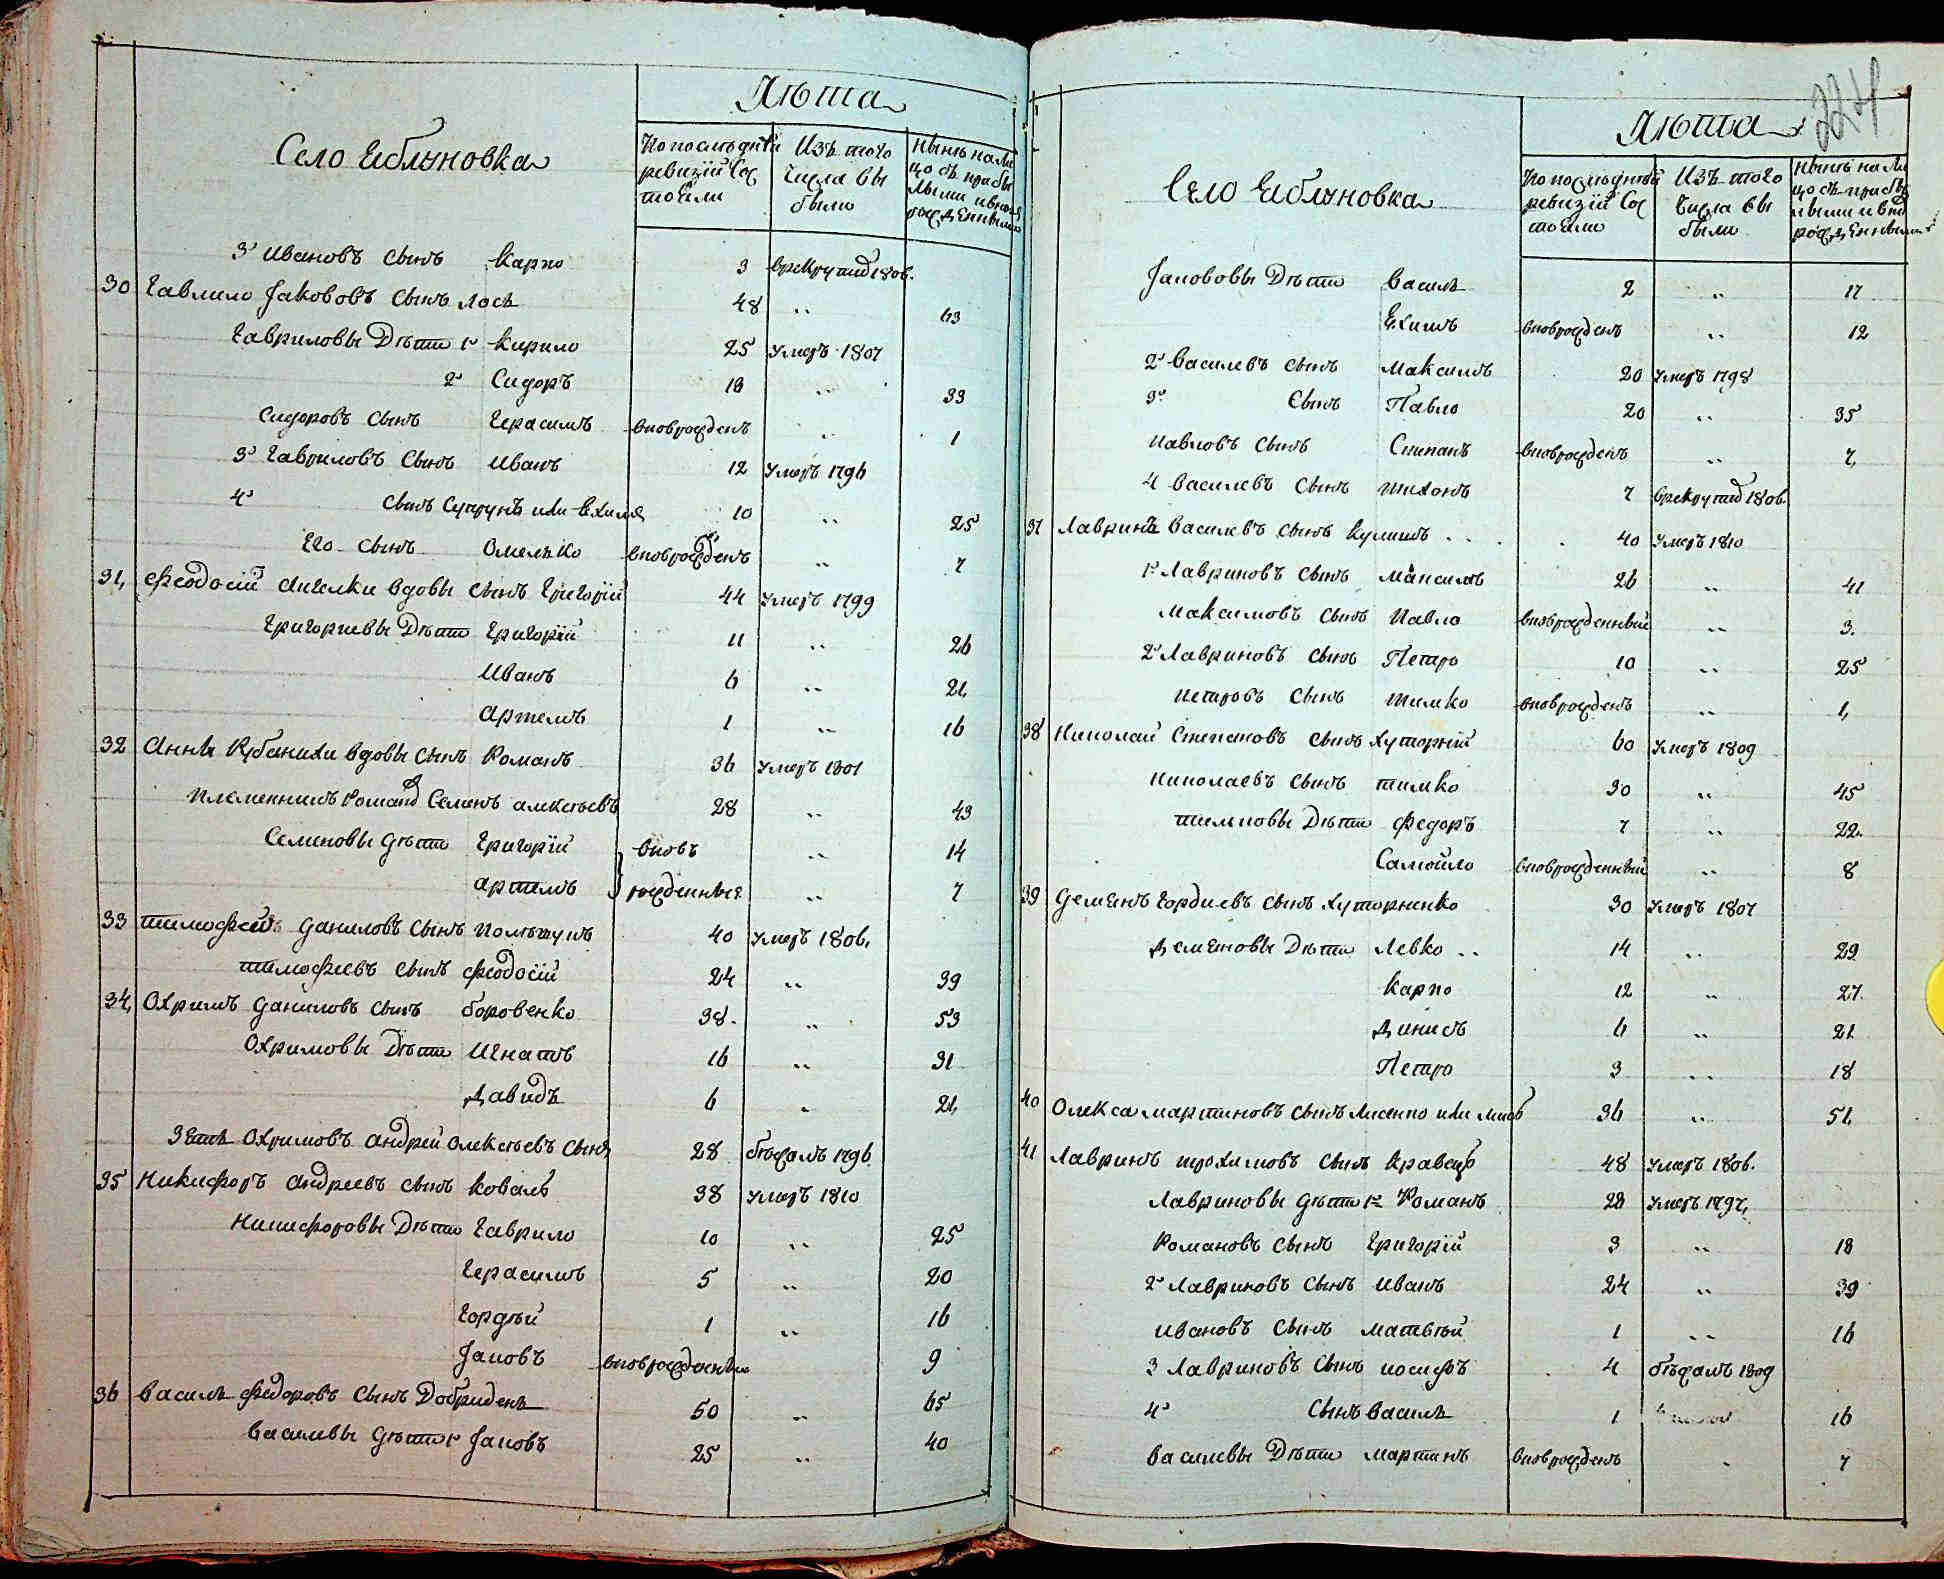 Лѣта
Село Яблуновка
По последнѣй ревизіи состояли
Изъ того числа выбыло
Нынѣ на лицо съ прибылыми и вновь рожденными
3й Ивановъ сынъ Карпо 3 в рекруты 1806.
30 Гаврило Jакововъ сынъ Лось 48 „ 63
Гавриловы Дѣти 1й Кирило 25 умеръ 1807
2й Сидоръ 18 „ 33
Сидоровъ сынъ Герасимъ вноврожденъ „ 1
3й Гавриловъ сынъ Иванъ 12 умеръ 1796
4й сынъ Супрунъ или 10 „ 25
Его сынъ Омелько вноврожденъ „ 7
31, Феодосій вдовы сынъ Григорій 44 умеръ 1799
Григориевы Дѣти Григорій 11 „ 26
Иванъ 6 „ 21,
Артемъ 1 „ 16
32 Анны Кубанихи вдовы сынъ Романъ 36 умеръ 1801
Племенникъ Романа Семенъ Алексѣевъ 28 „ 43
Семеновы дѣти Григорій вновь „ 14
Артемъ рожденные „ 7
33 Тимофей Даниловъ сынъ 40 умеръ 1806,
Тимофеевъ сынъ Феодосій 24 „ 39
34, Охримъ Даниловъ сынъ Боровенко 38. „ 53
Охримовы Дѣти Игнатъ 16 „ 31
Давидъ 6 „ 21,
Зять Охримовъ Андрей Олексѣевъ сынъ 28 бѣжалъ 1796
35 Никифоръ Андреевъ сынъ Коваль 38 умеръ 1810
Никифоровы Дѣти Гаврило 10 „ 25
Герасимъ 5 „ 20
Гордѣй 1 „ 16
Jаковъ вноврожденный 9
36 Василь Федоровъ сынъ Добридень 50 „ 65
Василевы дѣти 1й Jаковъ 25 „ 40
224
Лѣта
Село Яблуновка
По последнѣй ревизіи состояли
Изъ того числа выбыли
Нынѣ на лицо съ прибылыми и вновь рожденными
Jаковovы Дѣти Василь 2 „ 17
Якимъ вноврожденъ „ 12
2й Василевъ сынъ Максимъ 20 умеръ 1798
3й Сынъ Павло 20 „ 35
Павловъ сынъ Степанъ вноврожденъ „ 7,
4 Василевъ сынъ Тихонъ 7 в рекруты 1806.
37 Лавринъ Василевъ сынъ Кулишъ 40 умеръ 1810
1й Лавриновъ сынъ Максимъ 26 „ 41
Максимовъ сынъ Павло вноврожденный „ 3.
2й Лавриновъ сынъ Петро 10 „ 25
Петровъ сынъ Тимко вноврожденъ „ 1,
38 Николай Степановъ сынъ Хуторній 60 умеръ 1809
Николаевъ сынъ Тимко 30 „ 45
Тимковы Дѣти Федоръ 7 „ 22.
Самойло вноврожденный „ 8
39 Деменъ Гордиевъ сынъ Хуторненко 30 умеръ 1807
Деменовы Дѣти Левко 14 „ 29
Карпо 12 „ 27.
Динисъ 6 „ 21
Петро 3 „ 18
40 Олекса Мартиновъ сынъ Лисенко или 36 „ 51,
41 Лавринъ Трохимовъ сынъ Кравець 48 умеръ 1806.
Лавриновы дѣти 1й Романъ 28 умеръ 1797,
Романовъ сынъ Григорій 3 „ 18
2й Лавриновъ сынъ Иванъ 24 „ 39
Ивановъ сынъ Матвѣй 1 „ 16
3 Лавриновъ сынъ Иосифъ 4 бѣжалъ 1809
4й Сынъ Василь 1 16
Василевы Дѣти Мартинъ вноврожденъ „ 7